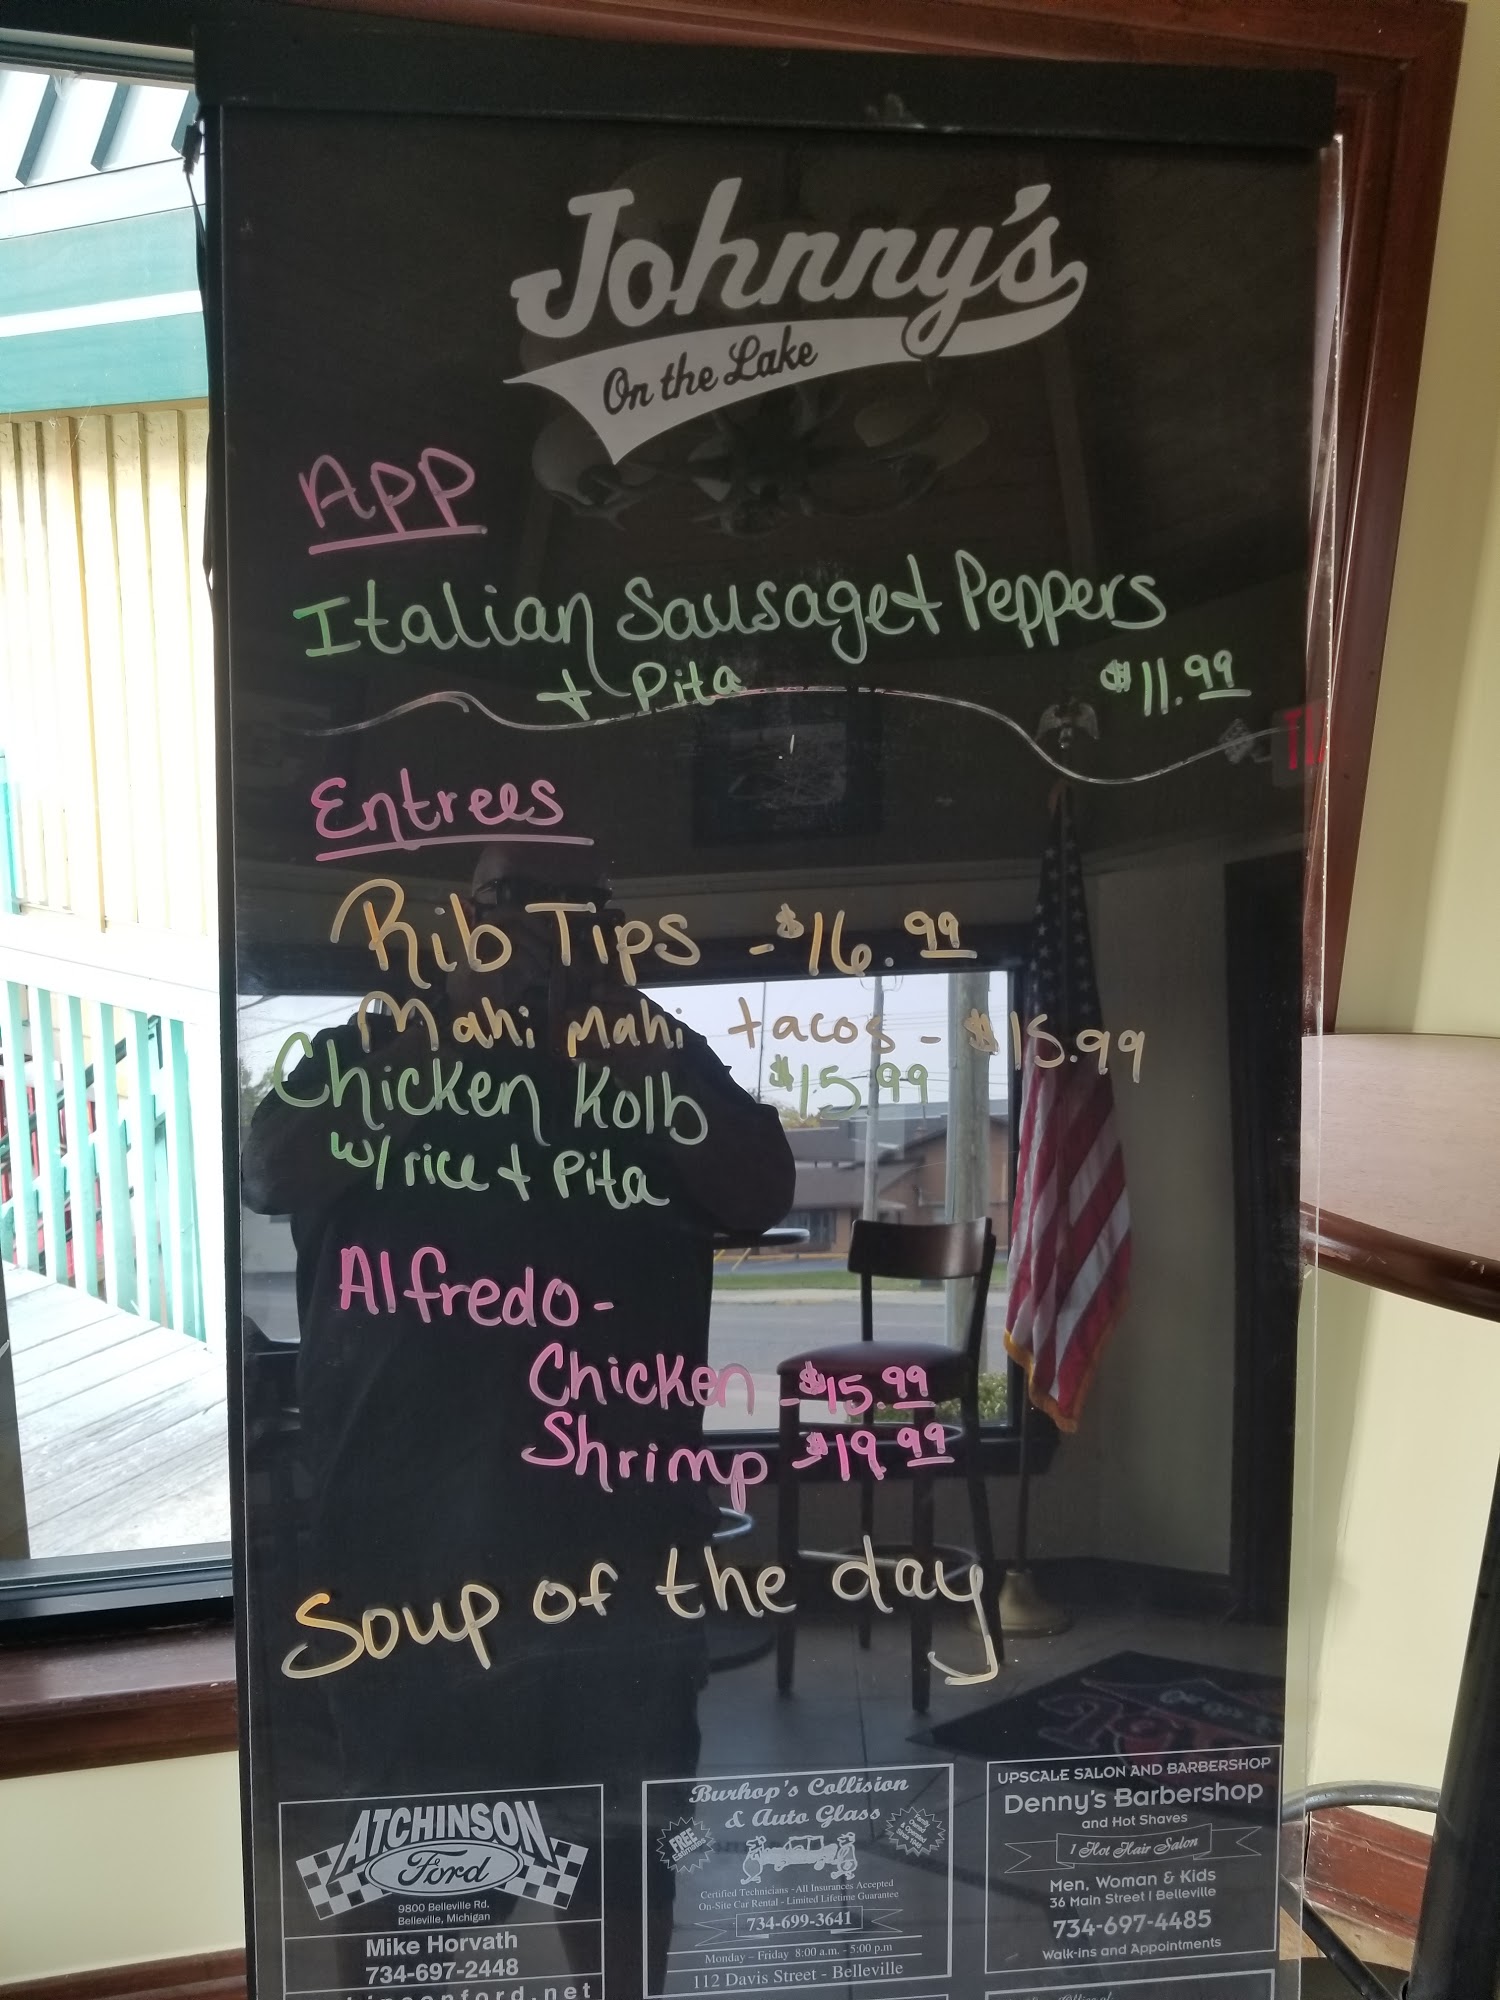 Johnny's
On the Lake
App
Italian Sausage + Peppers
+ Pita $11.99
Entrees
Rib Tips - $16.99
Mahi Mahi tacos - $15.99
Chicken Kolb $15.99
w/ rice + Pita
Alfredo -
Chicken - $15.99
Shrimp - $19.99
Soup of the day
ATCHINSON
Ford
9800 Belleville Rd.
Belleville, Michigan
Mike Horvath
734-697-2448
Burhop's Collision
& Auto Glass
FREE
Estimates
Family
Owned
& Operated
Certified Technicians - All Insurances Accepted
On-Site Car Rental - Limited Lifetime Guarantee
734-699-3641
Monday - Friday 8:00 a.m. - 5:00 p.m
112 Davis Street - Belleville
UPSCALE SALON AND BARBERSHOP
Denny's Barbershop
and Hot Shaves
1 Hot Hair Salon
Men, Woman & Kids
36 Main Street | Belleville
734-697-4485
Walk-ins and Appointments